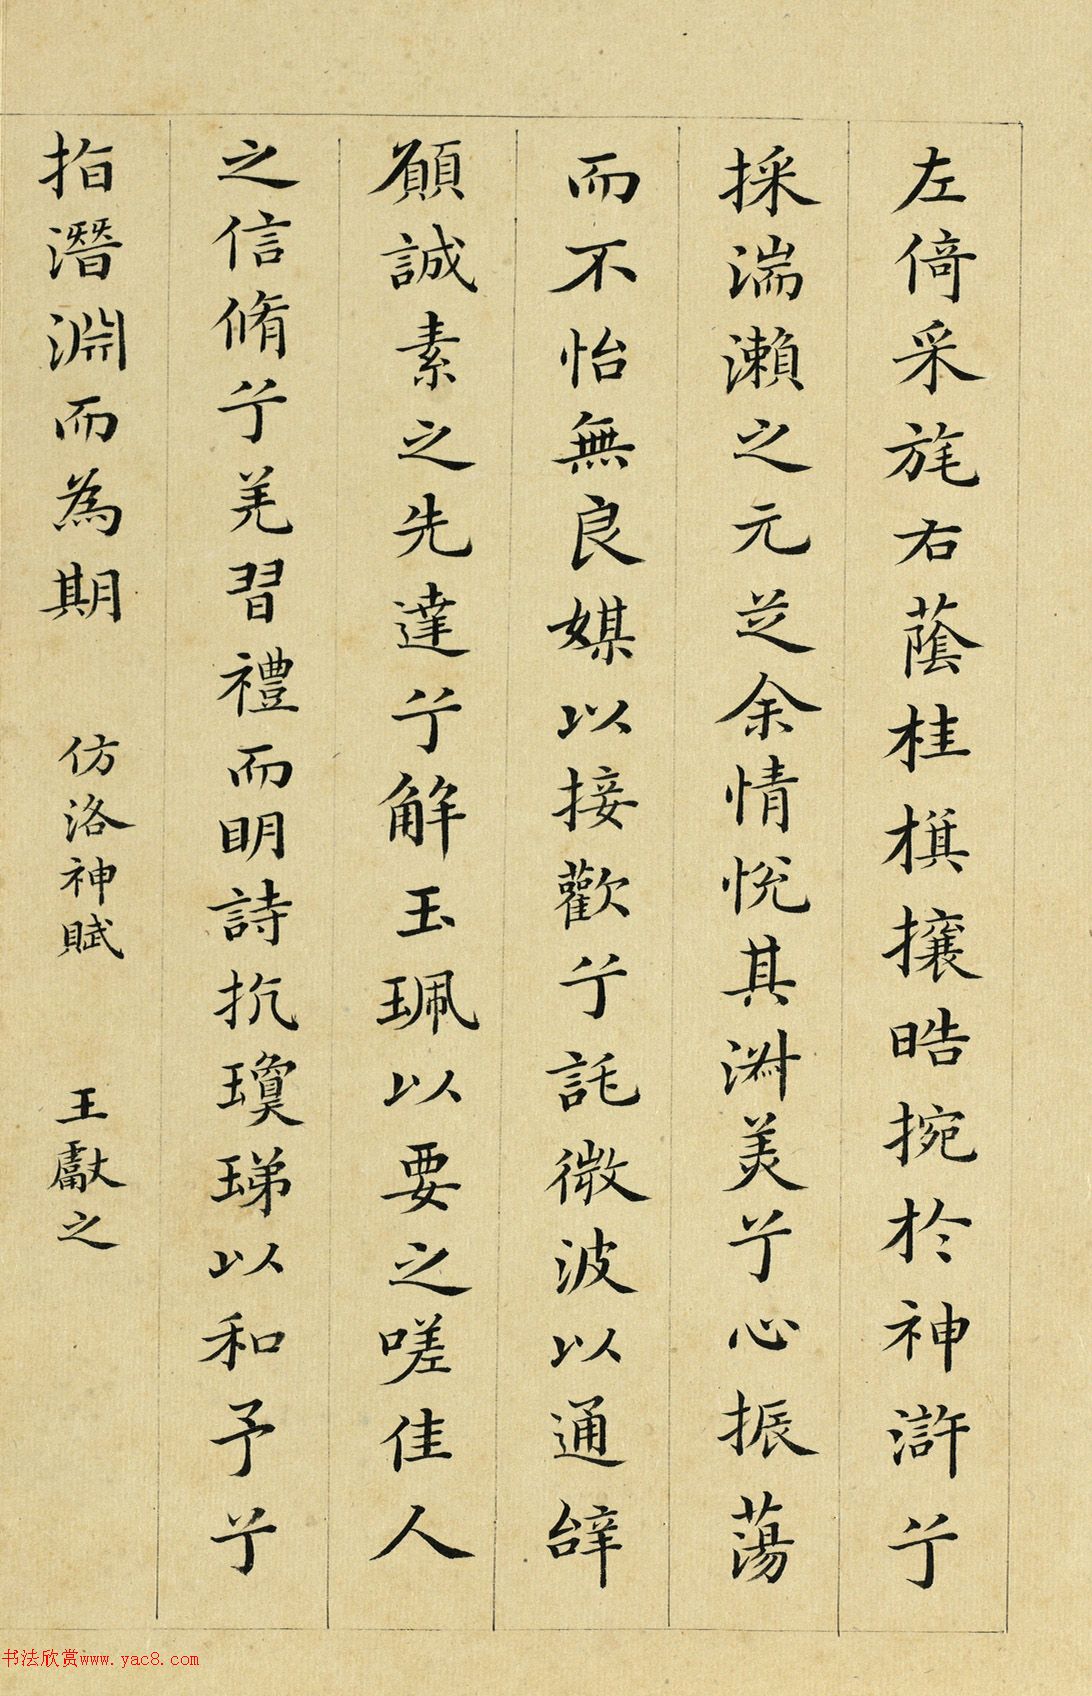 左倚采旄右蔭桂旗攘晧捥於神滸兮
採湍瀨之元芝余情悅其淋美兮心振蕩
而不怡無良媒以接歡兮託微波以通辝
願誠素之先達兮解玉珮以要之嗟佳人
之信脩兮羌習禮而明詩抗瓊珶以和予兮
指潛淵而為期
仿洛神賦
王獻之
书法欣赏www.yac8.com